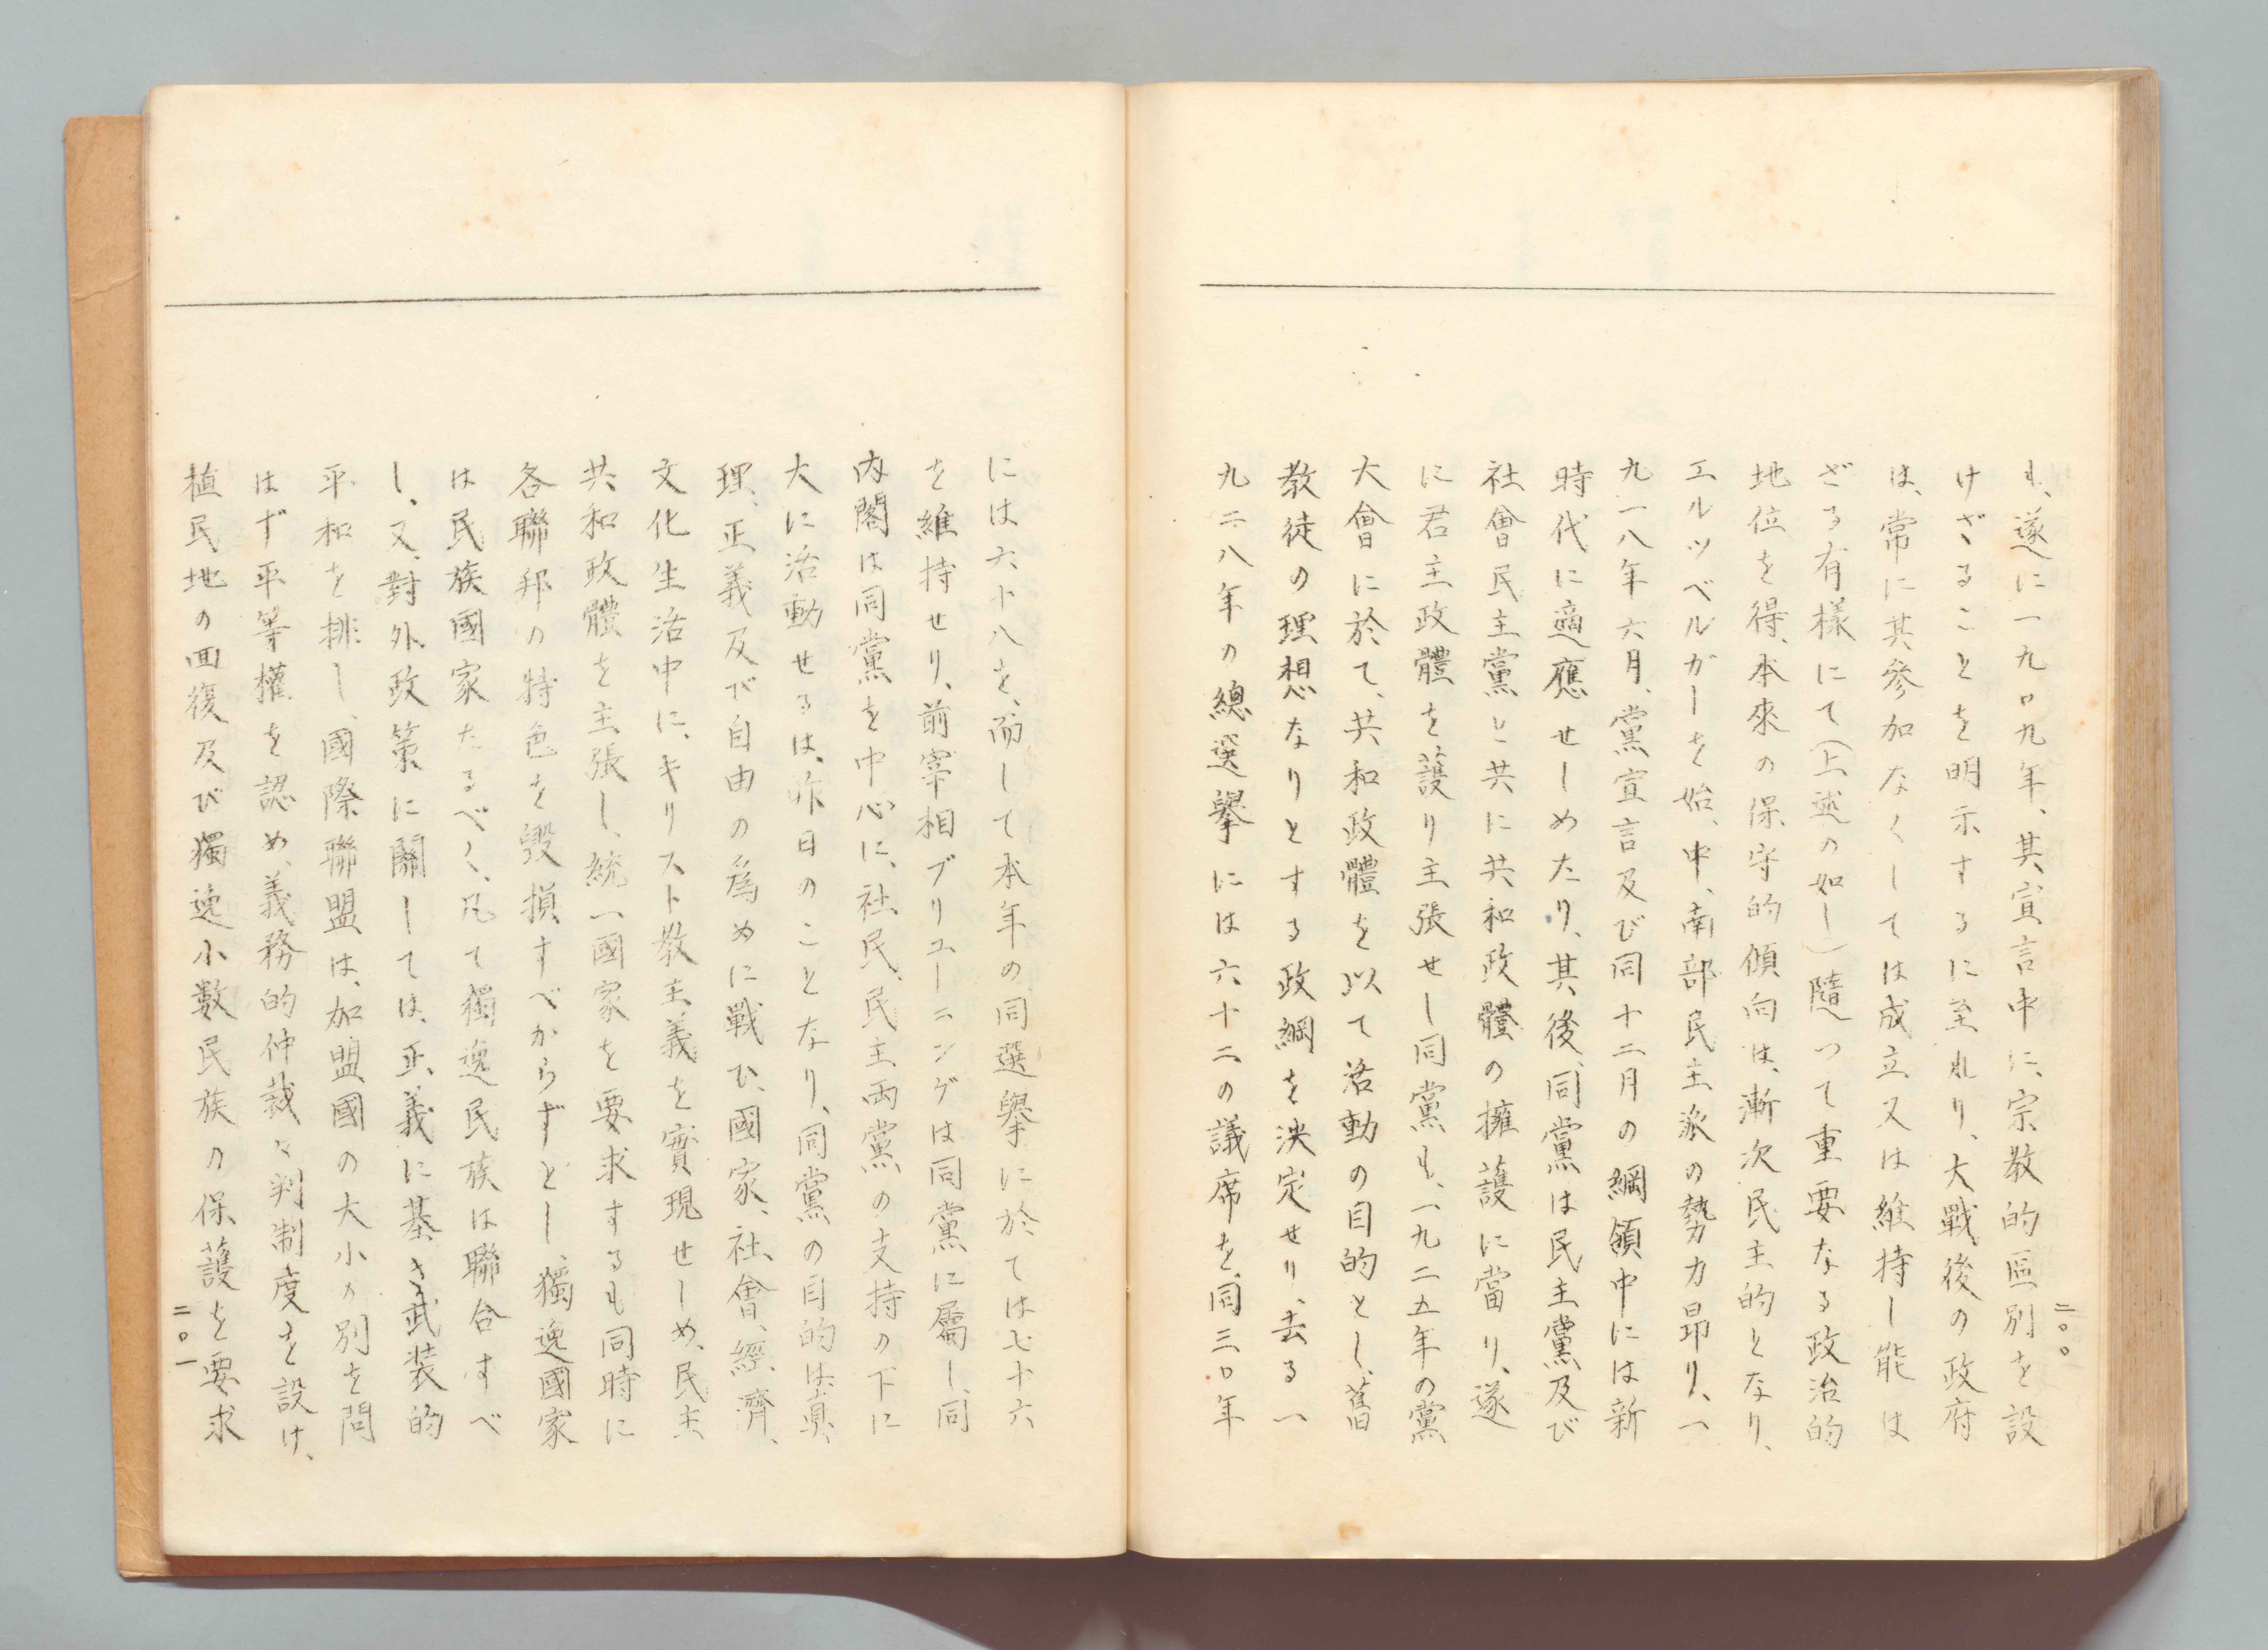 二〇〇
も、遂に一九〇九年、其宣言中に、宗教的區別を設
けざることを明示するに至れり、大戰後の政府
は、常に其參加なくしては成立又は維持し能は
ざる有樣にて（上述の如し）隨つて重要なる政治的
地位を得、本來の保守的傾向は、漸次民主的となり、
エルツベルガーを始、中、南部民主派の勢力昂り、一
九一八年六月、黨宣言及び同十二月の綱領中には新
時代に適應せしめたり、其後、同黨は民主黨及び
社會民主黨と共に共和政體の擁護に當り、遂
に君主政體を護り主張せし同黨も、一九二五年の黨
大會に於て、共和政體を以て活動の目的とし、舊
教徒の理想なりとする政綱を決定せり、去る一
九二八年の總選擧には六十二の議席を、同三〇年
には六十八を、而して本年の同選擧に於ては七十六
を維持せり、前宰相ブリユーニングは同黨に屬し、同
内閣は同黨を中心に、社民、民主両黨の支持の下に
大に活動せるは、昨日のことなり、同黨の目的は、眞
理、正義及び自由の爲めに戰ひ、國家、社會、經濟、
文化生活中に、キリスト教主義を實現せしめ、民主
共和政體を主張し、統一國家を要求するも同時に
各聯邦の特色を毀損すべからずとし、獨逸國家
は民族國家たるべく、凡て獨逸民族は聯合すべ
し、又、對外政策に關しては、正義に基き武装的
平和を排し、國際聯盟は、加盟國の大小の別を問
はず平等權を認め、義務的仲裁々判制度を設け、
植民地の回復及び獨逸小數民族の保護を要求
二〇一